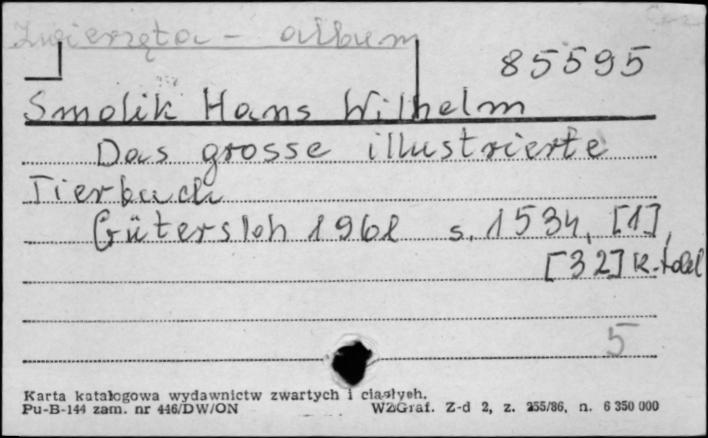 Zwierzęta - album
85595
Smolik Hans Wilhelm
Das grosse illustrierte
Tierbuch
Gütersloh 1961 s. 1534, [1],
[32] k. tabl
5
Karta katalogowa wydawnictw zwartych i ciągłych.
Pu-B-144 zam. nr 446/DW/ON WZGraf. Z-d 2, z. 255/86, n. 6 350 000